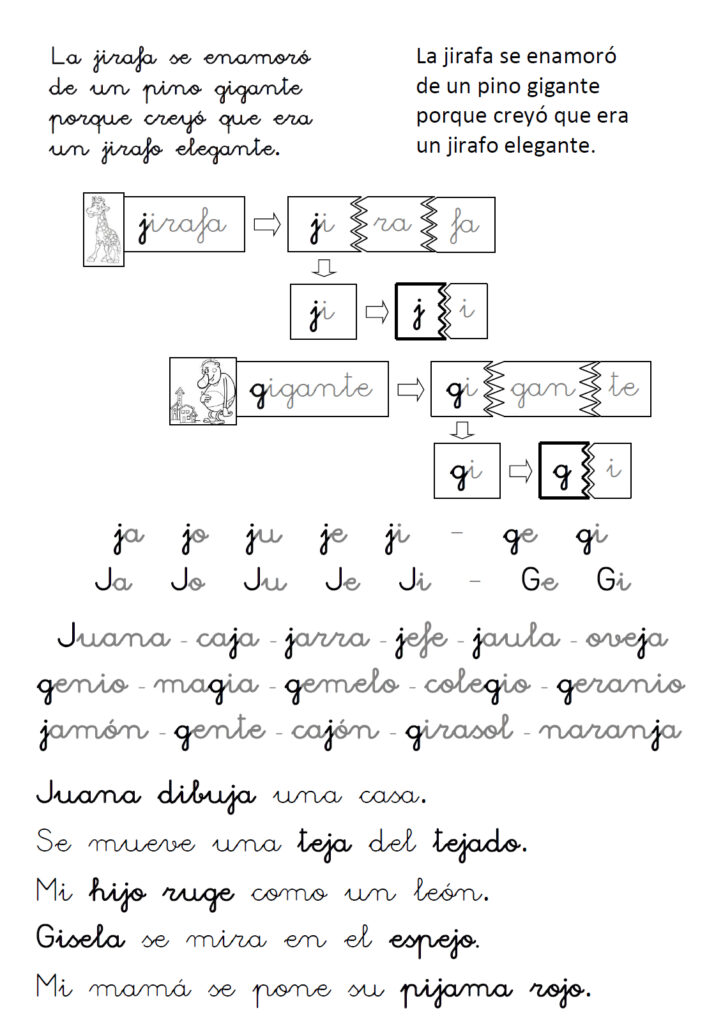 La jirafa se enamoró
de un pino gigante
porque creyó que era
un jirafo elegante.
La jirafa se enamoró
de un pino gigante
porque creyó que era
un jirafo elegante.
jirafa ji ra fa
ji j i
gigante gi gan te
gi g i
ja jo ju je ji - ge gi
Ja Jo Ju Je Ji - Ge Gi
Juana - caja - jarra - jefe - jaula - oveja
genio - magia - gemelo - colegio - geranio
jamón - gente - cajón - girasol - naranja
Juana dibuja una casa.
Se mueve una teja del tejado.
Mi hijo ruge como un león.
Gisela se mira en el espejo.
Mi mamá se pone su pijama rojo.